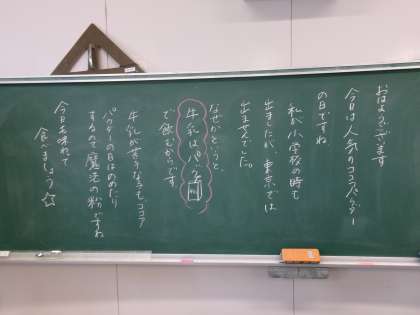 おはようございます
今日は人気のココアパウダー
の日ですね
私が小学校の時も
出ましたが、東京では
出ませんでした。
なぜかというと、
牛乳はパック
で飲むからです
牛乳が苦手な子もココア
パウダーの日はのめたり
するので魔法の粉ですね
今日も味わって
食べましょう☆